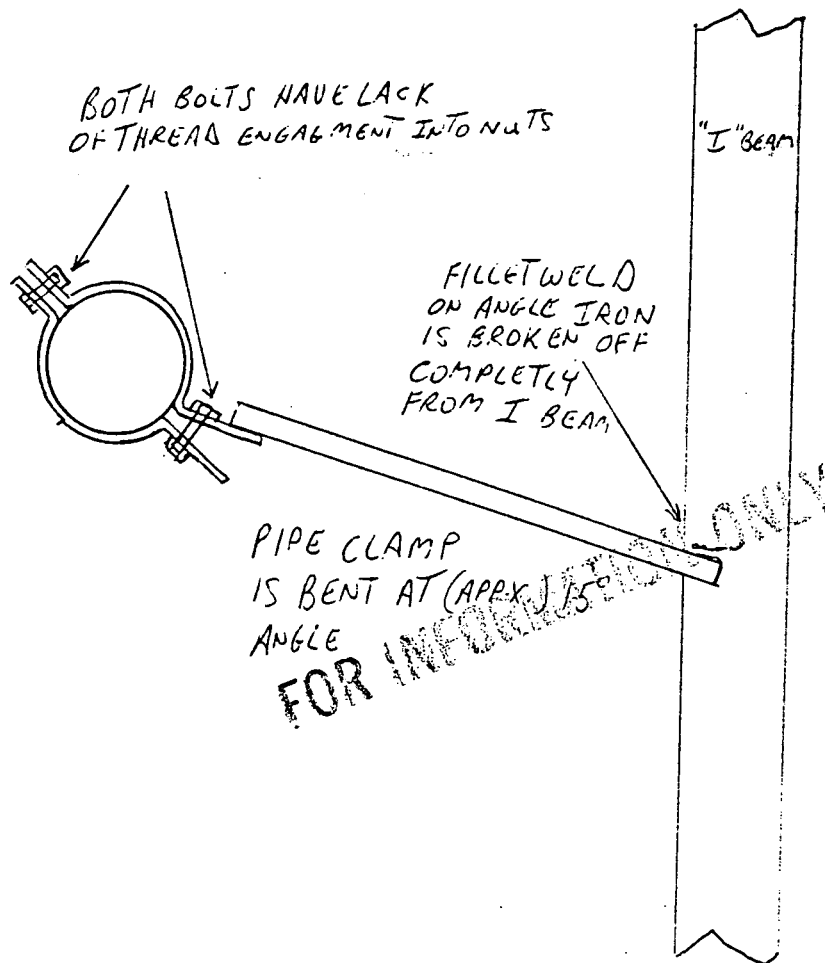 BOTH BOLTS HAVE LACK
OF THREAD ENGAGMENT INTO NUTS
"I" BEAM
FILLET WELD
ON ANGLE IRON
IS BROKEN OFF
COMPLETLY
FROM I BEAM
PIPE CLAMP
IS BENT AT (APPX.) 15°
ANGLE
FOR INFORMATION ONLY